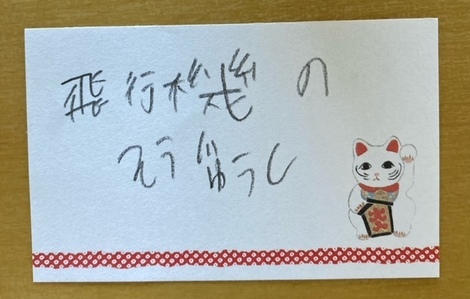 飛行機の
そうじゅうし